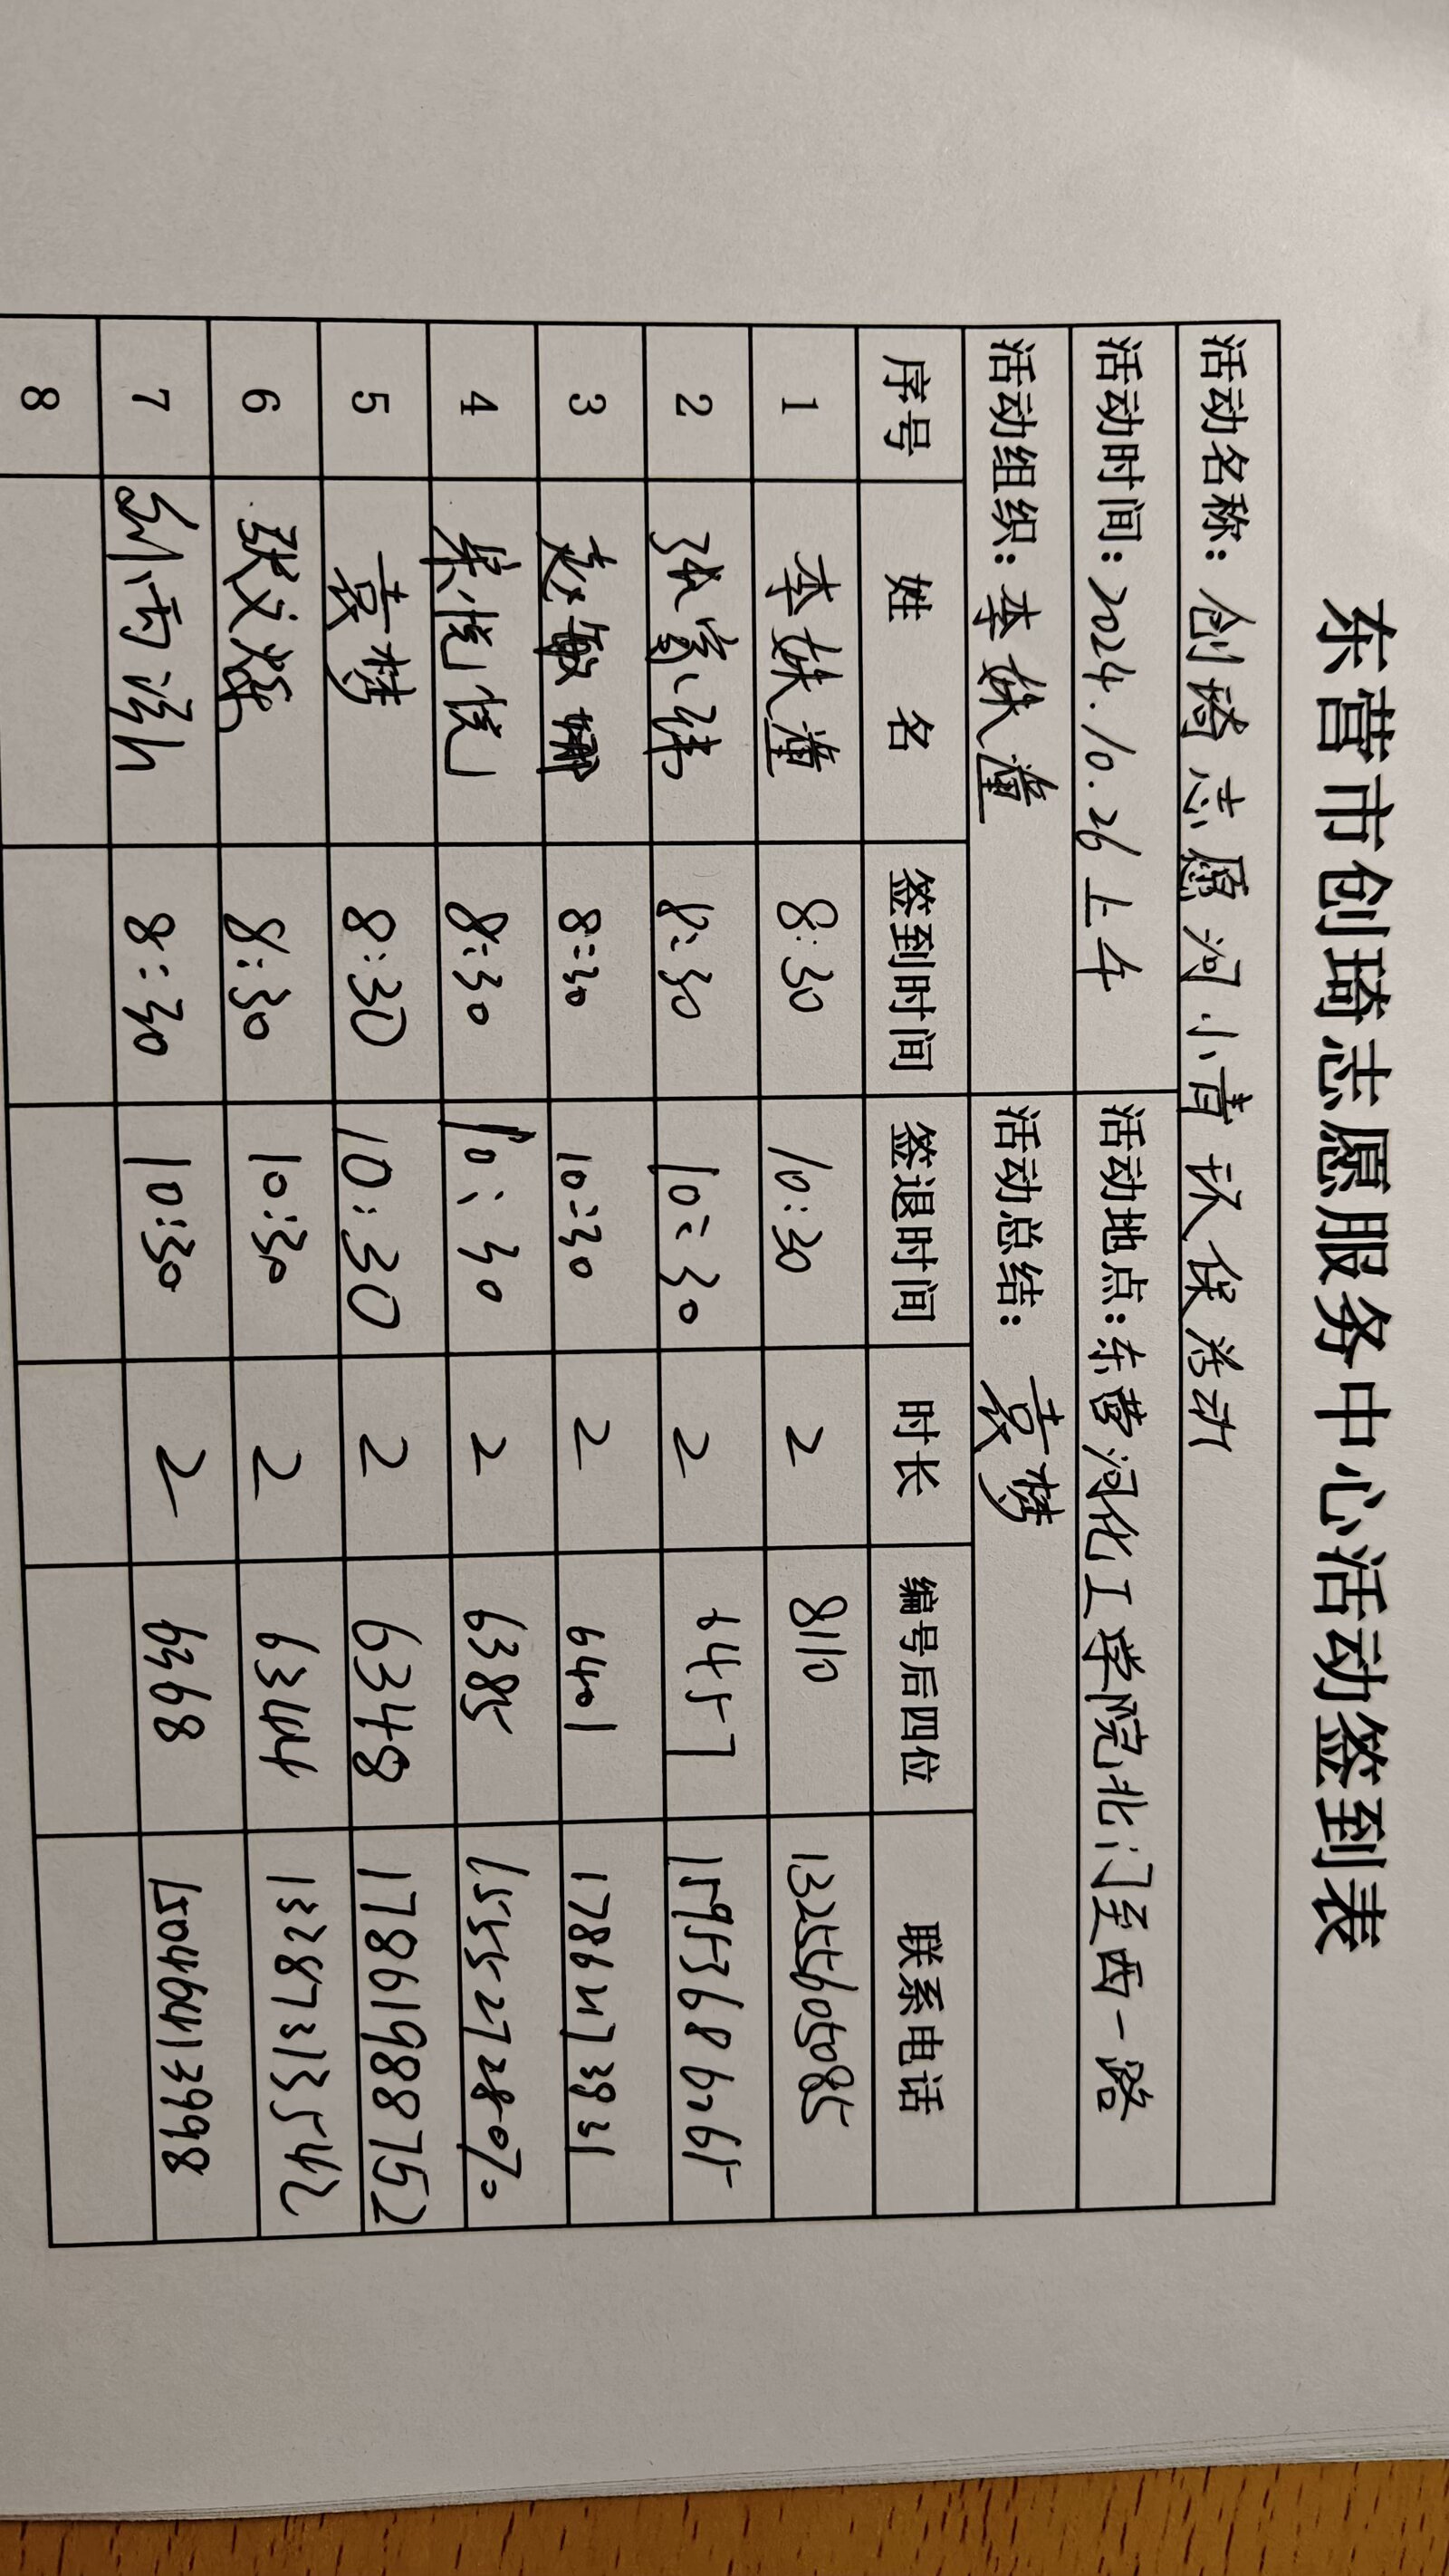 东营市创琦志愿服务中心活动签到表
活动名称：创琦志愿河小青环保活动
活动时间：2024.10.26上午 活动地点：东营河化工学院北门至西一路
活动组织：李姝潼 活动总结：袁梦
序号 姓名 签到时间 签退时间 时长 编号后四位 联系电话
1 李姝潼 8:30 10:30 2 8110 13255605085
2 8:30 10:30 2 6457 15953686065
3 赵敏娜 8:30 10:30 2 6401
4 柴悦悦 8:30 10:30 2 6385 15552728070
5 袁梦 8:30 10:30 2 6348 17861988752
6 张义 8:30 10:30 2 6344 13287313542
7 刘雨 8:30 10:30 2 6368 15046413998
8